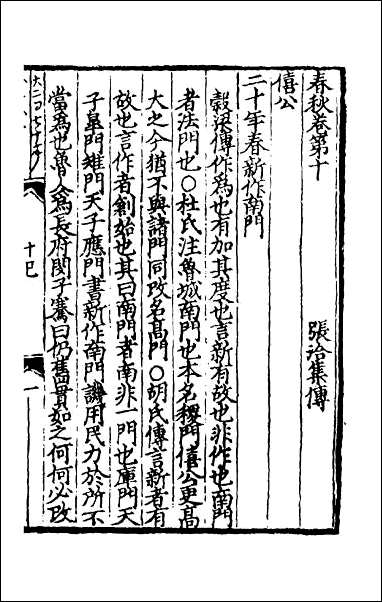 春秋卷第十　張洽集傳
僖公
二十年春新作南門
穀梁傳作爲也有加其度也言新有故也非作也南門
者法門也〇杜氏注魯城南門也本名稷門僖公更高
大之今猶不與諸門同改名高門〇胡氏傳言新者有
故也言作者創始也其曰南門者南非一門也庫門天
子臯門雉門天子應門書新作南門譏用民力於所不
當爲也魯人爲長府閔子騫曰仍舊貫如之何何必改
十巳
一